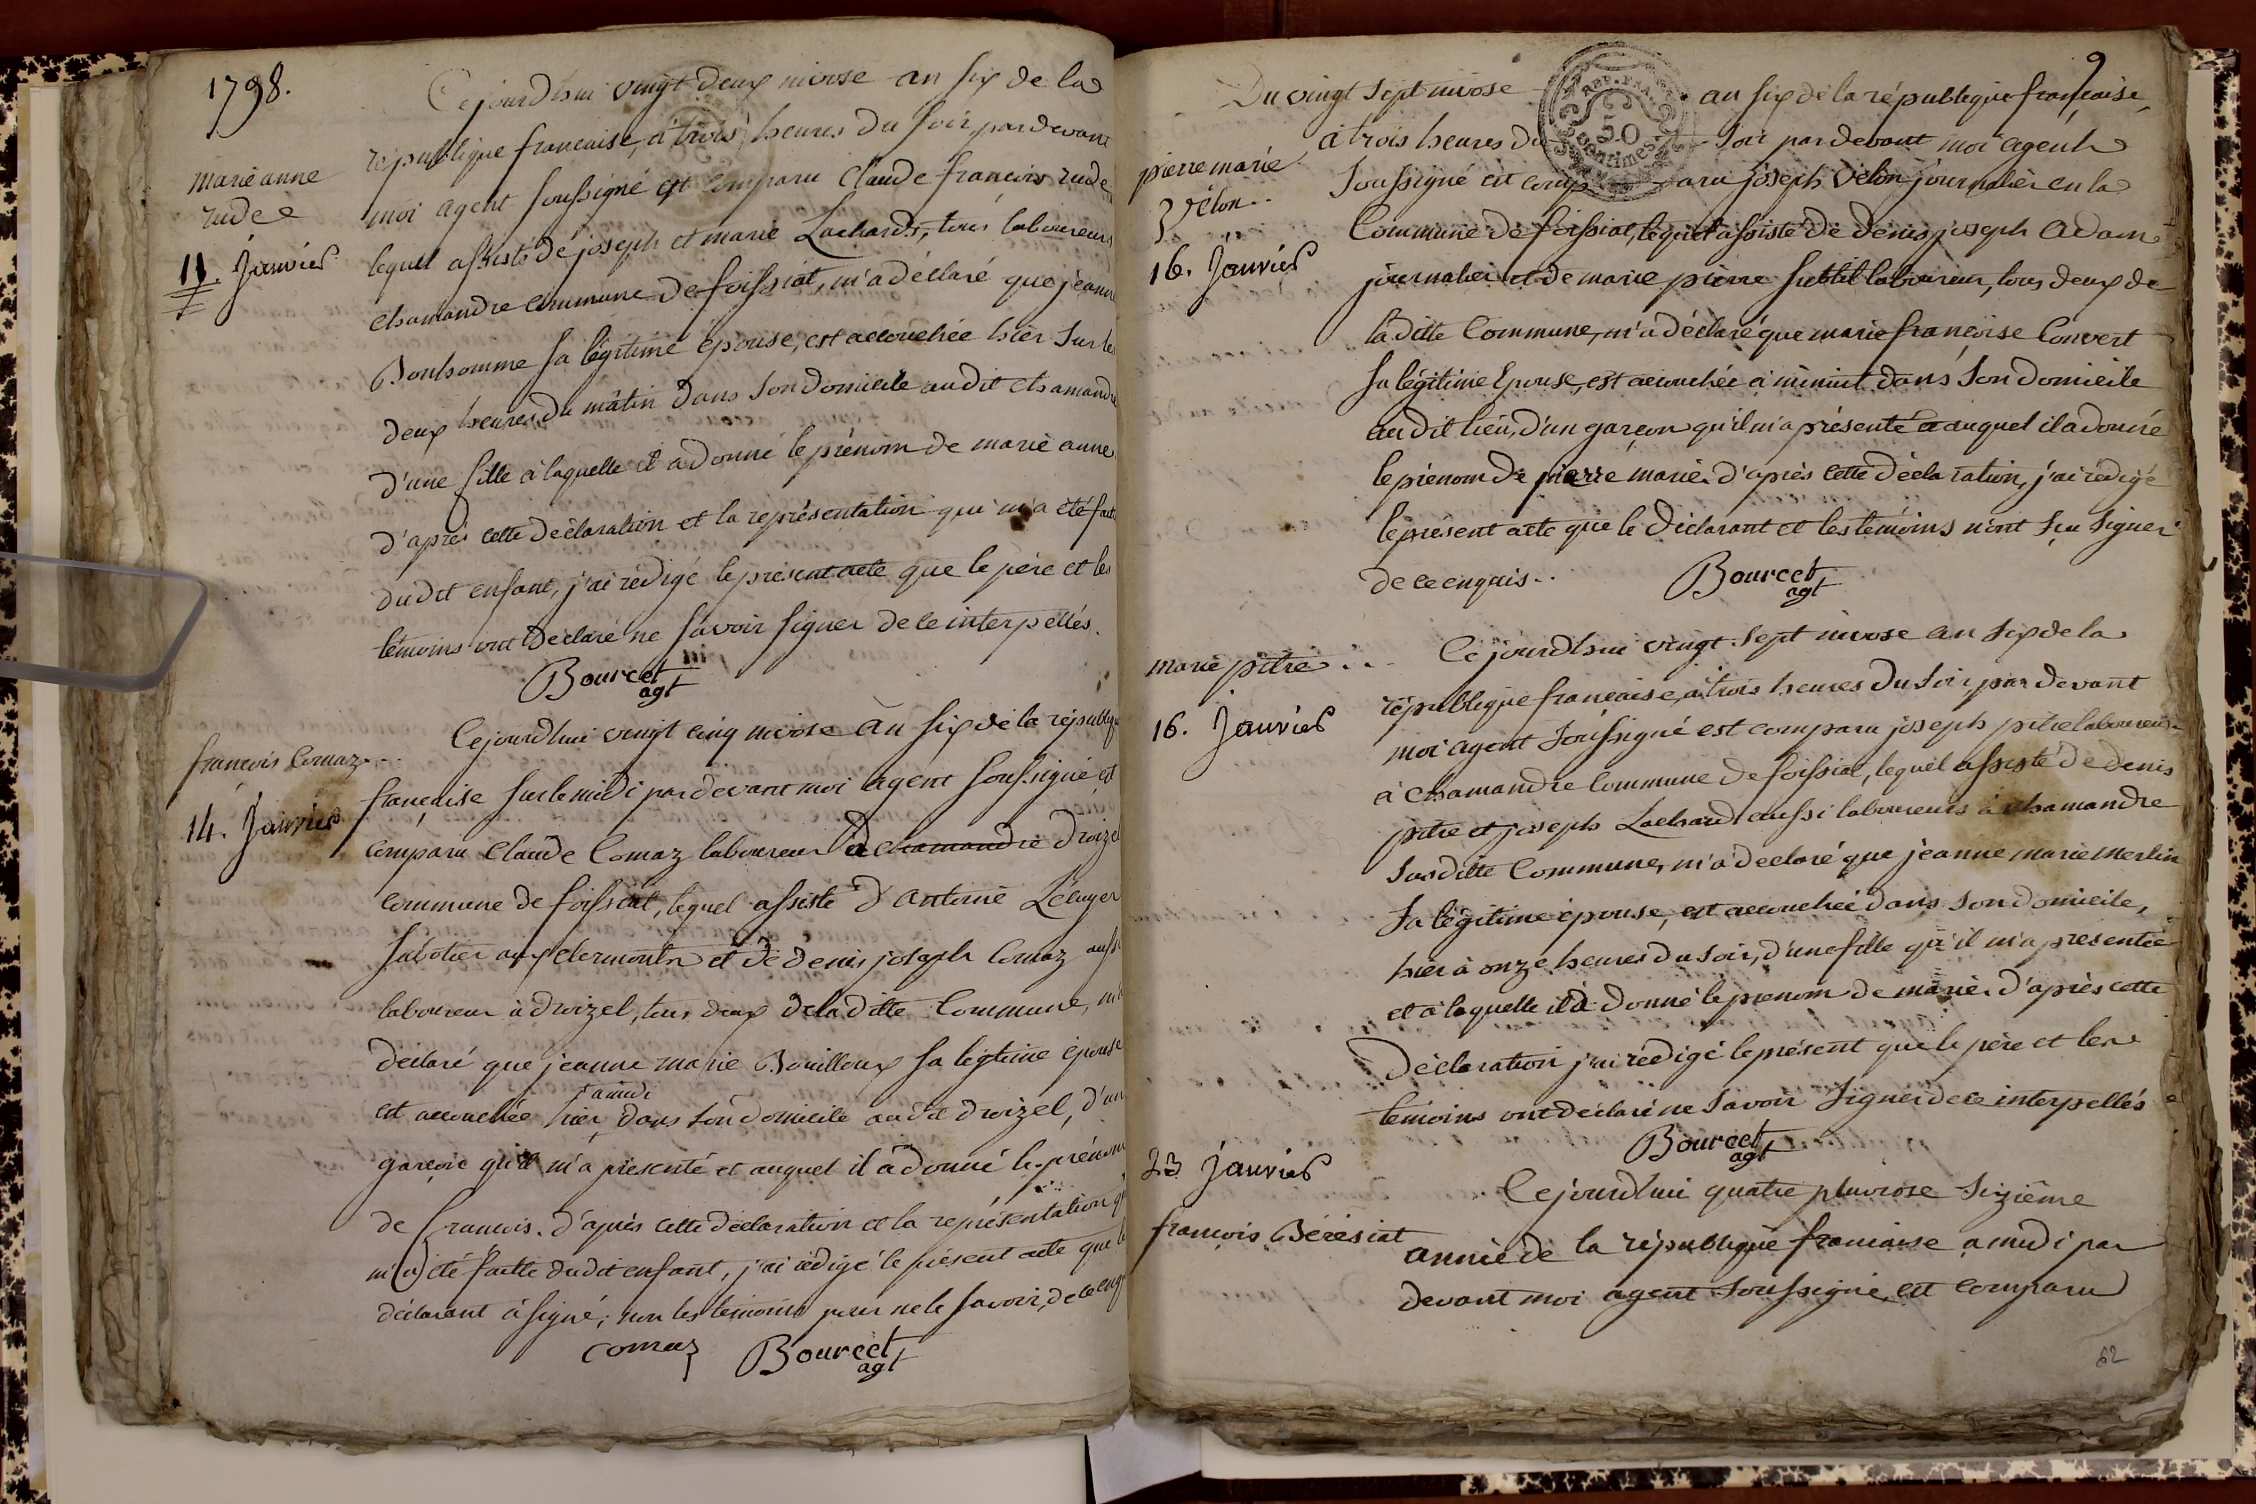 1798.
Cejourdhui vingt deux nivose an six de la
république francaise, à trois heures du soir, par devant
marie anne
rude
moi agent soussigné est comparu Claude francois rude
11. Janvier
lequel assisté de joseph et marie Lachard, tous laboureurs
chamandre commune de foissiat, m'a déclaré que jeanne
Bonhomme sa légitime épouse, est accouchée hier sur les
deux heures du mâtin dans son domicile audit chamandre
d'une fille à laquelle il a donné le prénom de marie anne
d'après cette déclaration et la représentation qui m'a été faite
dudit enfant, j'ai rédigé le présent acte que le père et les
témoins ont déclaré ne savoir signer de ce interpellés.
Bourcet
agt
francois Comaz
Cejourdhui vingt cinq nivose an six de la républiq
14. Janvier
françaÍse sur le midi par devant moi agent soussigné est
comparu Claude Comaz laboureur à chamandre droizel
commune de foissiat, lequel assisté d'antoine Lécuyer
sabotier aux clermonts et de denis joseph Comaz aussi
laboureur à droizel, tous deux de la ditte Commune, m'a
déclaré que jeanne marie Bouilloux sa légitime épouse
à midi
est accouchée hier, dans son domicile audit droizel, d'un
garçon qu'il m'a présenté et auquel il a donné le prénom
de francois. d'après cette déclaration et la représentation qui
m'(a) été faitte dudit enfant, j'ai rédigé le présent acte que le
déclarant à signé; non les témoins pour ne le savoir, de ce enq
comaz Bourcet
agt
9
REP. FRA.
50
CENTIMES
Du vingt sept nivose an six de la république française,
à trois heures du soir par devant moi agent
pierre marie
vélon
soussigné est comp aru joseph vélon journalier en la
Commune de foissiat, lequel assisté de denis joseph adam
16. Janvier
journalier et de marie pierre subtil laboureur, tous deux de
la ditte Commune, m'a déclaré que marie françoise Convert
sa légitime Epouse, est accouchée à minuit dans son domicile
audit lieu, d'un garçon qu'il m'a présenté et auquel il a donné
le prénom de pierre marie. d'après cette déclaration, j'ai rédigé
le présent acte que le déclarant et les témoins n'ont sçu signer
de ce enquis.
Bourcet
agt
marie pitre
Cejourdhui vingt sept nivose an six de la
république francaise, à trois heures du soir, par devant
16. Janvier
moi agent soussigné est comparu joseph pitre laboureur
à chamandre Commune de foissiat, lequel assisté de denis
pitre et joseph Lachard aussi laboureurs à chamandre
susditte Commune, m'a déclaré que jeanne marie Merlin
sa légitime épouse, est accouchée dans son domicile,
hier à onze heures du soir, d'une fille qu'il m'a présentée
et à laquelle il a donné le prenom de marie. d'après cette
déclaration j'ai rédigé le présent que le père et les
témoins ont déclaré ne savoir signer de ce interpellés
Bourcet
agt
23 janvier
Cejourdhui quatre pluviose sixième
françois Bérésiat
année de la république francaise à midi par
devant moi agent soussigné, est comparu
62